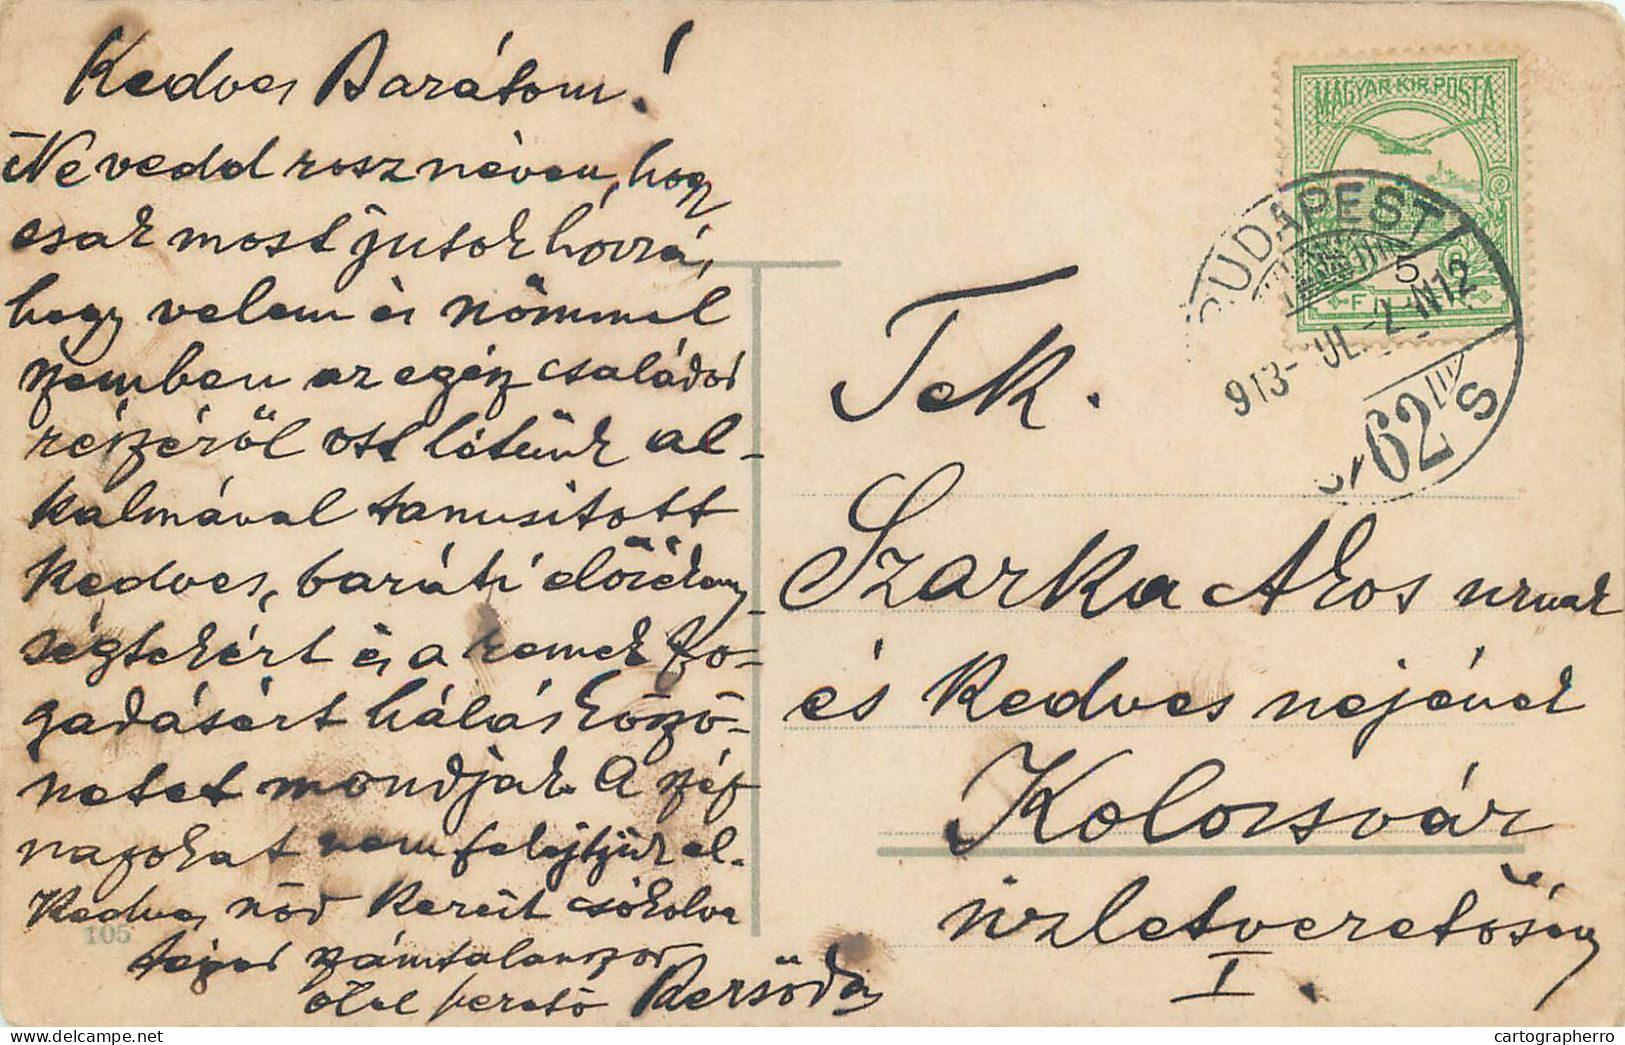 Kedves Barátom!
Ne vedd rosz néven, hogy
csak most jutok hozzá,
hogy velem és nőmmel
szemben az egész családod
részéről ott létünk al-
kalmával tanusitott
kedves, baráti előzékeny-
ségtekért és a remek fo-
gadásért hálás köszö-
netet mondjak. A szép
napokat nem felejtjük el.
Kedves nőd kezeit csókolva
téged számtalanszor
ölel szerető
105
MAGYAR KIR. POSTA
BUDAPEST
913 JUL -2 N12
5
62
S
Tek.
Szarka Ákos urnak
és kedves nejének
Kolozsvár
üzletvezetőség
I.
cartographerro